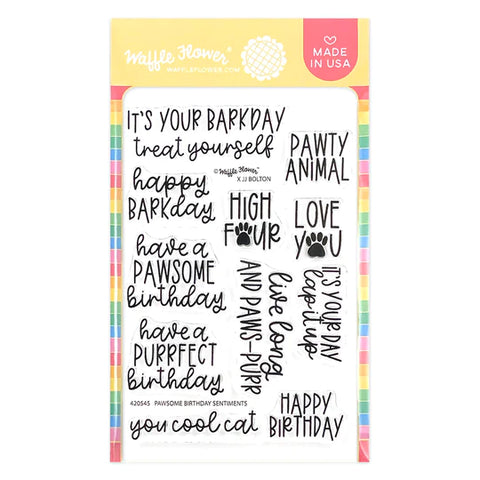 Waffle Flower
WAFFLEFLOWER.COM
MADE
IN USA
IT'S YOUR BARKDAY
treat yourself
PAWTY
ANIMAL
© Waffle Flower
X JJ BOLTON
happy
BARKday
HIGH
FOUR
LOVE
YOU
have a
PAWSOME
birthday
live long
AND PAWS-PURR
IT'S YOUR DAY
lap it up
have a
PURRFECT
birthday
420545 PAWSOME BIRTHDAY SENTIMENTS
you cool cat
HAPPY
BIRTHDAY